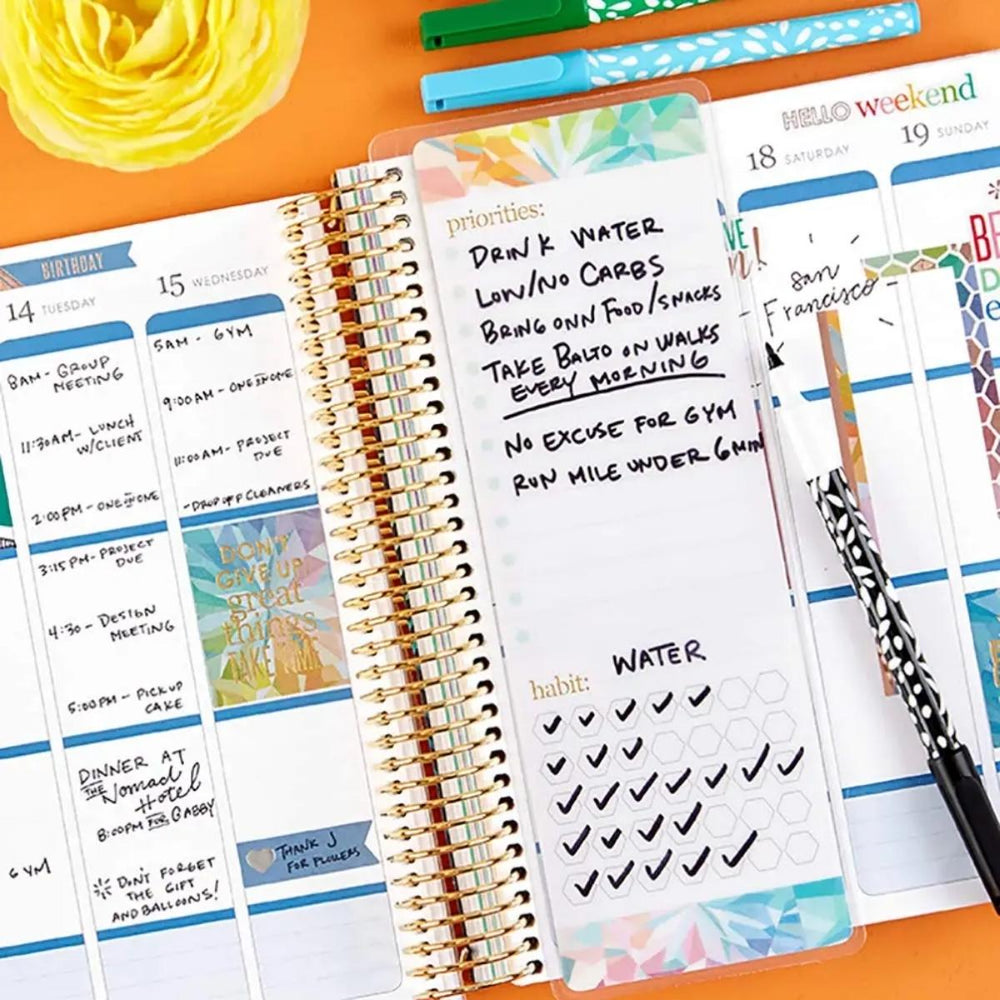 BIRTHDAY
14 TUESDAY
8AM - GROUP
MEETING
11:30AM - LUNCH
W/CLIENT
2:00PM - ONE ON ONE
3:15 PM - PROJECT
DUE
4:30 - DESIGN
MEETING
5:00PM - PICKUP
CAKE
DINNER AT
THE Nomad
Hotel
8:00PM FOR GABBY
DON'T FORGET
THE GIFT
AND BALLOONS!
GYM
15 WEDNESDAY
5AM - GYM
9:00AM - ONE ON ONE
11:00AM - PROJECT
DUE
- DROP OFF CLEANERS
DON'T
GIVE UP
great
things
TAKE TIME
THANK J
FOR FLOWERS
priorities:
DRINK WATER
LOW/NO CARBS
BRING OWN FOOD/SNACKS
TAKE BALTO ON WALKS
EVERY MORNING
NO EXCUSE FOR GYM
RUN MILE UNDER 6 MIN
habit: WATER
HELLO weekend
18 SATURDAY
19 SUNDAY
San
Francisco
BE